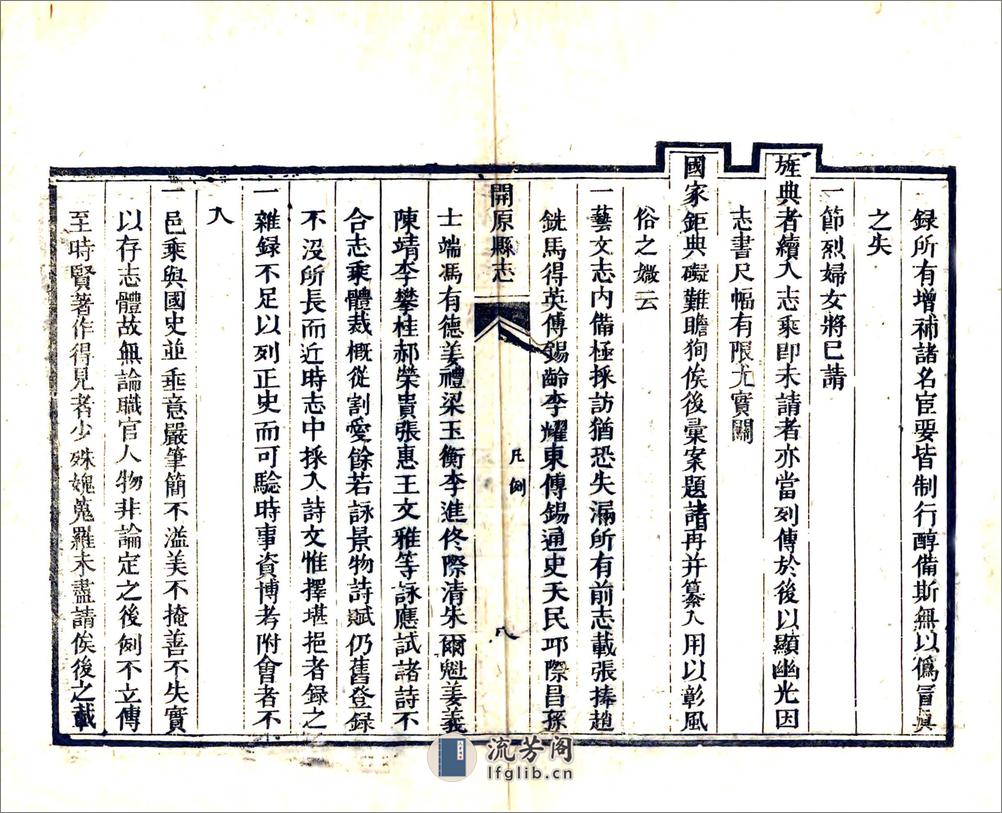 録所有增補諸名宦要皆制行醇備斯無以僞冒眞
之失
一節烈婦女將巳請
旌典者續入志乘即未請者亦當列傳於後以顯幽光因
志書尺幅有限尤實關
國家鉅典礙難瞻狥俟後彙案題請再并纂入用以彰風
俗之媺云
一藝文志内備極採訪猶恐失漏所有前志載張捧趙
銑馬得英傅錫齡李耀東傅錫通史天民邛際昌孫
開原縣志
凡例
八
士端馮有德姜禮梁玉衡李進佟際清朱爾魁姜義
陳靖李攀桂郝榮貴張惠王文雅等詠應試諸詩不
合志乘體裁概從割愛餘若詠景物詩賦仍舊登録
不沒所長而近時志中採入詩文惟擇堪挹者録之
一雜録不足以列正史而可騐時事資博考附會者不
入
一邑乘與國史並垂意嚴筆簡不濫美不掩善不失實
以存志體故無論職官人物非論定之後例不立傳
至時賢著作得見者少殊媿蒐羅未盡請俟後之載
流芳阁
lfglib.cn